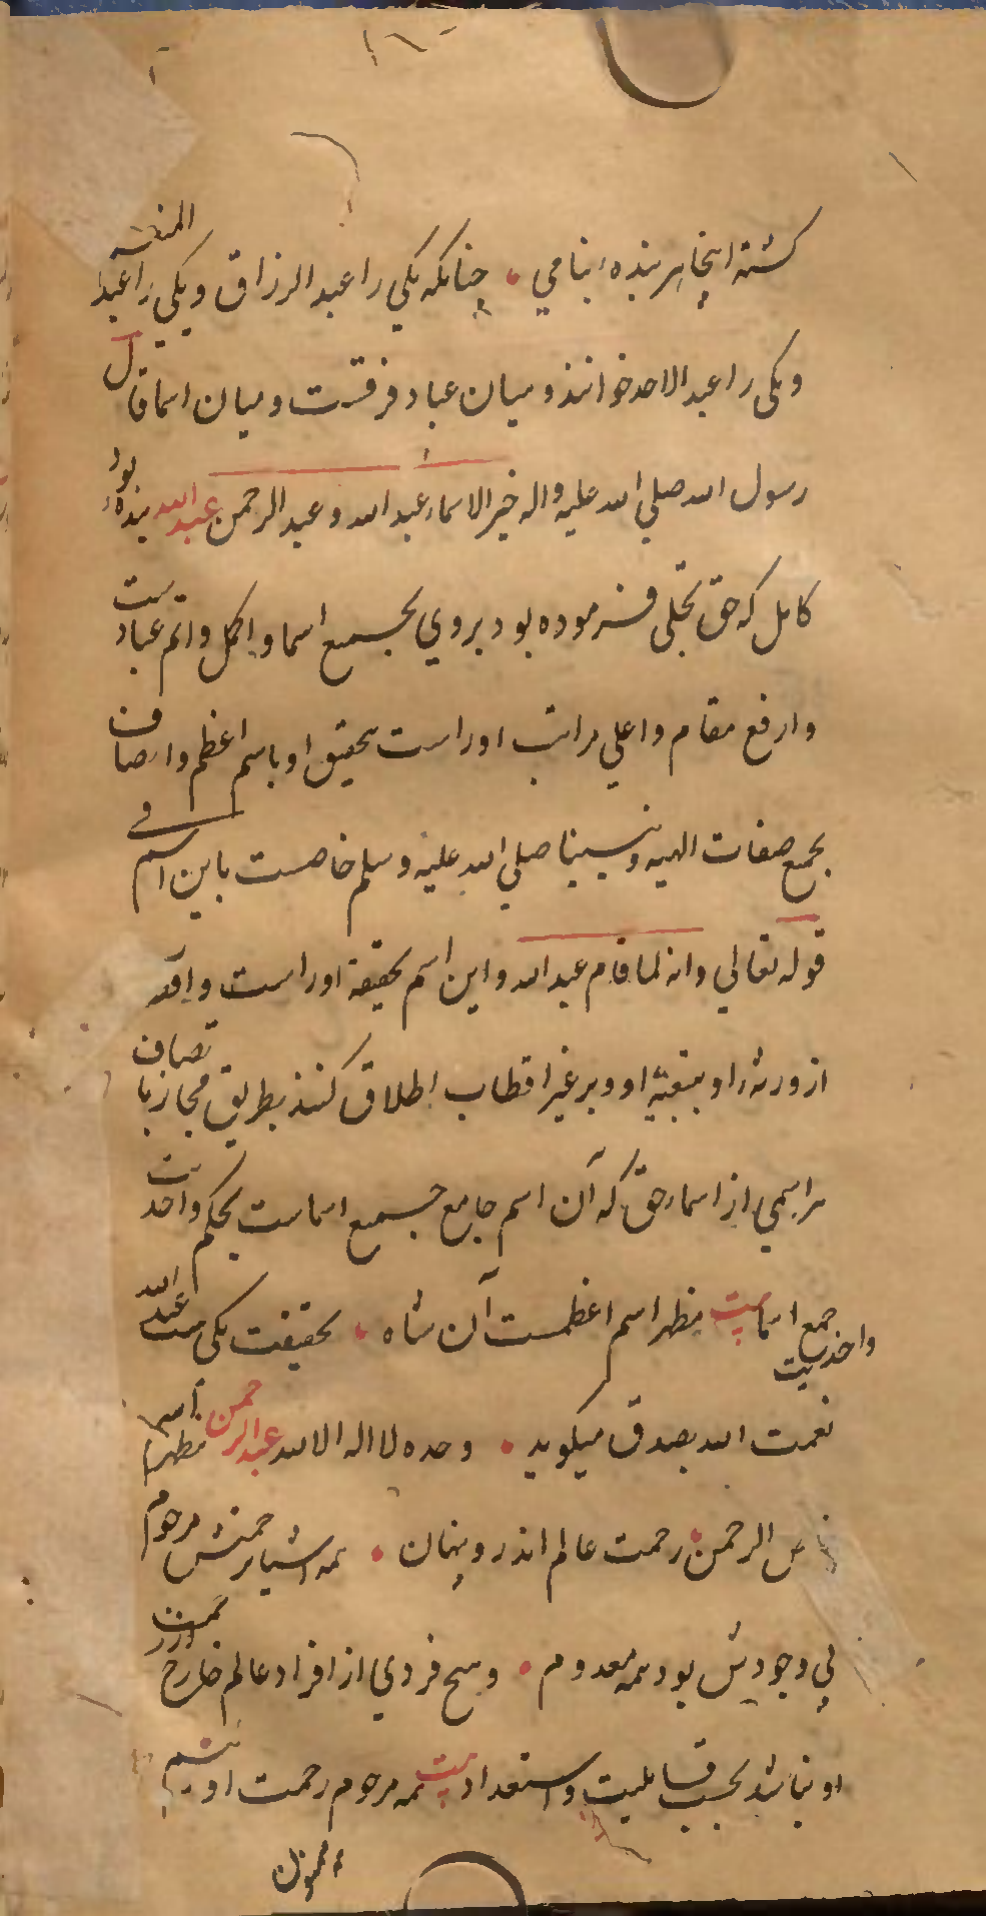 گشته اینجا هر بنده بنامی • چنانکه یکی را عبد الرزاق و یکی را عبد المنعم
و یکی را عبد الاحد خوانند و میان عباد فرقست و میان اسما قال
رسول الله صلی الله علیه و اله خیر الاسماء عبد الله و عبد الرحمن عبد الله بنده بود
کامل که حق تجلی فرموده بود بروی بجمیع اسما و اکمل و اتم عبادست
و ارفع مقام و اعلی مراتب اوراست تحقیق او باسم اعظم و اتصاف
بجمع صفات الهیه و نبینا صلی الله علیه و سلم خاصست باین اسم فی
قوله تعالی و انه لما قام عبد الله و این اسم بحقیقة اوراست و
از ورثه او بتبعیة او و بر غیر اقطاب اطلاق کنند بطریق مجاز باتصاف
هر اسمی از اسماء حق که آن اسم جامع جمیع اسماست بحکم واحدیت
و احدیت جمع اسما بیت مظهر اسم اعظمست آن شاه • بحقیقت یکیست عبد الله
نعمت الله بصدق میکوید • وحده لا اله الا الله عبد الرحمن مظهر اسم
الرحمن • رحمت عالم اندرو پنهان • همه اشیا برحمتش مرحوم
بی وجودش بود همه معدوم • و هیچ فردی از افراد عالم خارج از رحمت
او نباشد بحسب قابلیت و استعداد بیت همه مرحوم رحمت اوییم